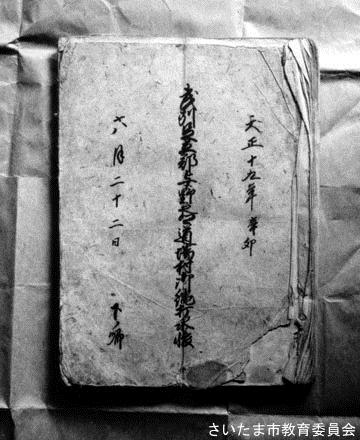 天正十九年辛卯
武州足立郡与野之郷道場村御縄打水帳
六八月二十二日
下郷
さいたま市教育委員会